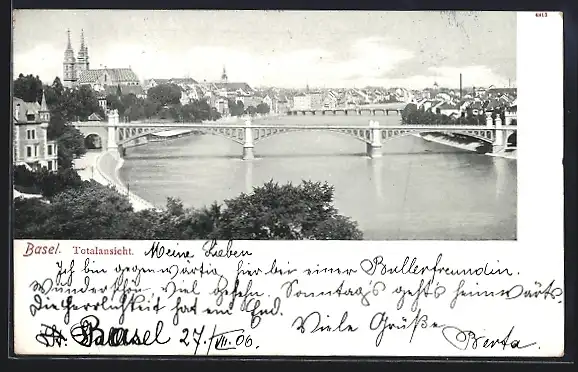 6413
Basel. Totalansicht. Meine Lieben
Ich bin gegenwärtig hier bei einer freundin.
Wunderschön, viel Sehn. Sonntag's geht's heimwärts.
Die Herrlichkeit hat ein End. Viele Grüße
Basel 27./VII. 06. Berta.